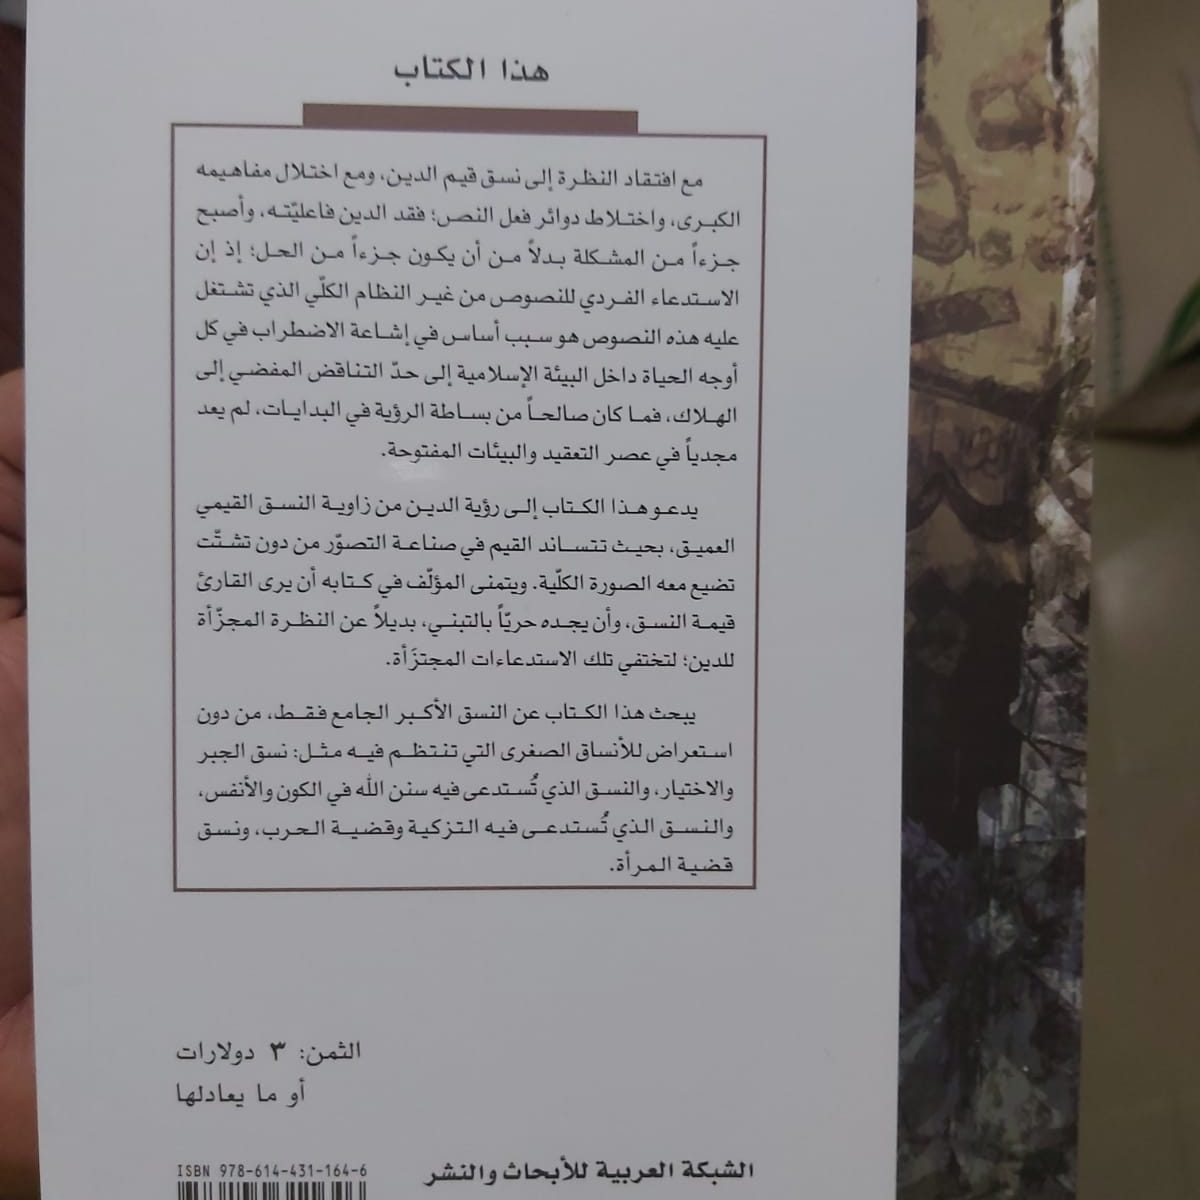 هذا الكتاب
مع افتقاد النظرة إلى نسق قيم الدين، ومع اختلال مفاهيمه
الكبرى، واختلاط دوائر فعل النص؛ فقد الدين فاعليّته، وأصبح
جزءاً من المشكلة بدلاً من أن يكون جزءاً من الحل؛ إذ إن
الاستدعاء الفردي للنصوص من غير النظام الكلّي الذي تشتغل
عليه هذه النصوص هو سبب أساس في إشاعة الاضطراب في كل
أوجه الحياة داخل البيئة الإسلامية إلى حدّ التناقض المفضي إلى
الهلاك، فما كان صالحاً من بساطة الرؤية في البدايات، لم يعد
مجدياً في عصر التعقيد والبيئات المفتوحة.
يدعو هذا الكتاب إلى رؤية الدين من زاوية النسق القيمي
العميق، بحيث تتساند القيم في صناعة التصوّر من دون تشتّت
تضيع معه الصورة الكلّية. ويتمنى المؤلّف في كتابه أن يرى القارئ
قيمة النسق، وأن يجده حريّاً بالتبني، بديلاً عن النظرة المجزّأة
للدين؛ لتختفي تلك الاستدعاءات المجتزَأة.
يبحث هذا الكتاب عن النسق الأكبر الجامع فقط، من دون
استعراض للأنساق الصغرى التي تنتظم فيه مثل: نسق الجبر
والاختيار، والنسق الذي تُستدعى فيه سنن الله في الكون والأنفس،
والنسق الذي تُستدعى فيه التزكية وقضية الحرب، ونسق
قضية المرأة.
الثمن: ٣ دولارات
أو ما يعادلها
الشبكة العربية للأبحاث والنشر
ISBN 978-614-431-164-6